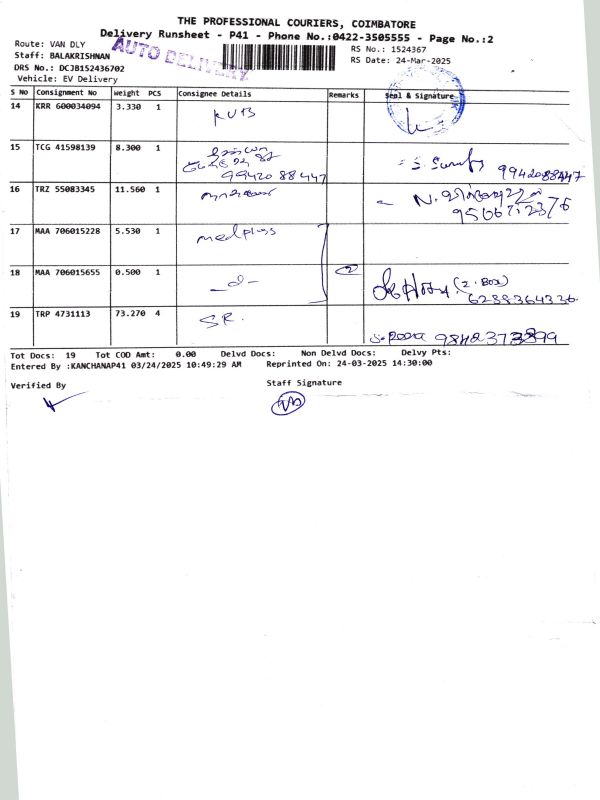 THE PROFESSIONAL COURIERS, COIMBATORE
Delivery Runsheet - P41 - Phone No.:0422-3505555 - Page No.:2
Route: VAN DLY
AUTO DELIVERY
RS No.: 1524367
Staff: BALAKRISHNAN
RS Date: 24-Mar-2025
DRS No.: DCJB152436702
Vehicle: EV Delivery
S No Consignment No Weight PCS Consignee Details Remarks Seal & Signature
14 KRR 600034094 3.330 1 KUB
15 TCG 41598139 8.300 1
9942088447
9942088447
16 TRZ 55083345 11.560 1
N.
17 MAA 706015228 5.530 1 medplus
18 MAA 706015655 0.500 1 -d- 2
(2. Box)
6288364336
19 TRP 4731113 73.270 4 SR.
Tot Docs: 19 Tot COD Amt: 0.00 Delvd Docs: Non Delvd Docs: Delvy Pts:
Entered By :KANCHANAP41 03/24/2025 10:49:29 AM Reprinted On: 24-03-2025 14:30:00
Verified By
Staff Signature